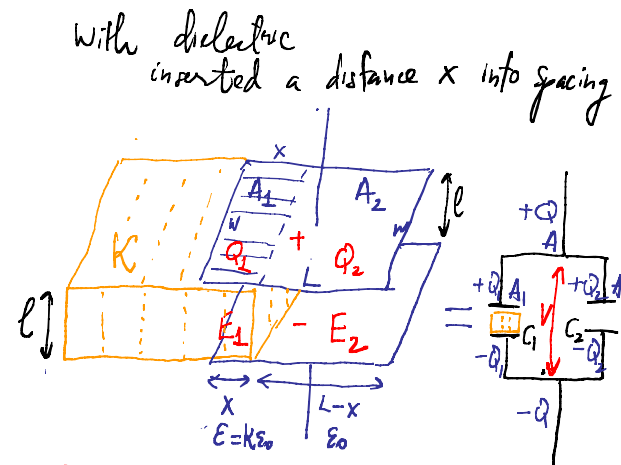 With dielectric
inserted a distance x into spacing
x
A1 A2
l
w w
K
Q1 + Q2
L
l
E1 - E2
x L-x
ε=Kε0 ε0
=
+Q
A
+Q1 A1 +Q2 A
V
C1 C2
-Q1 -Q2
-Q